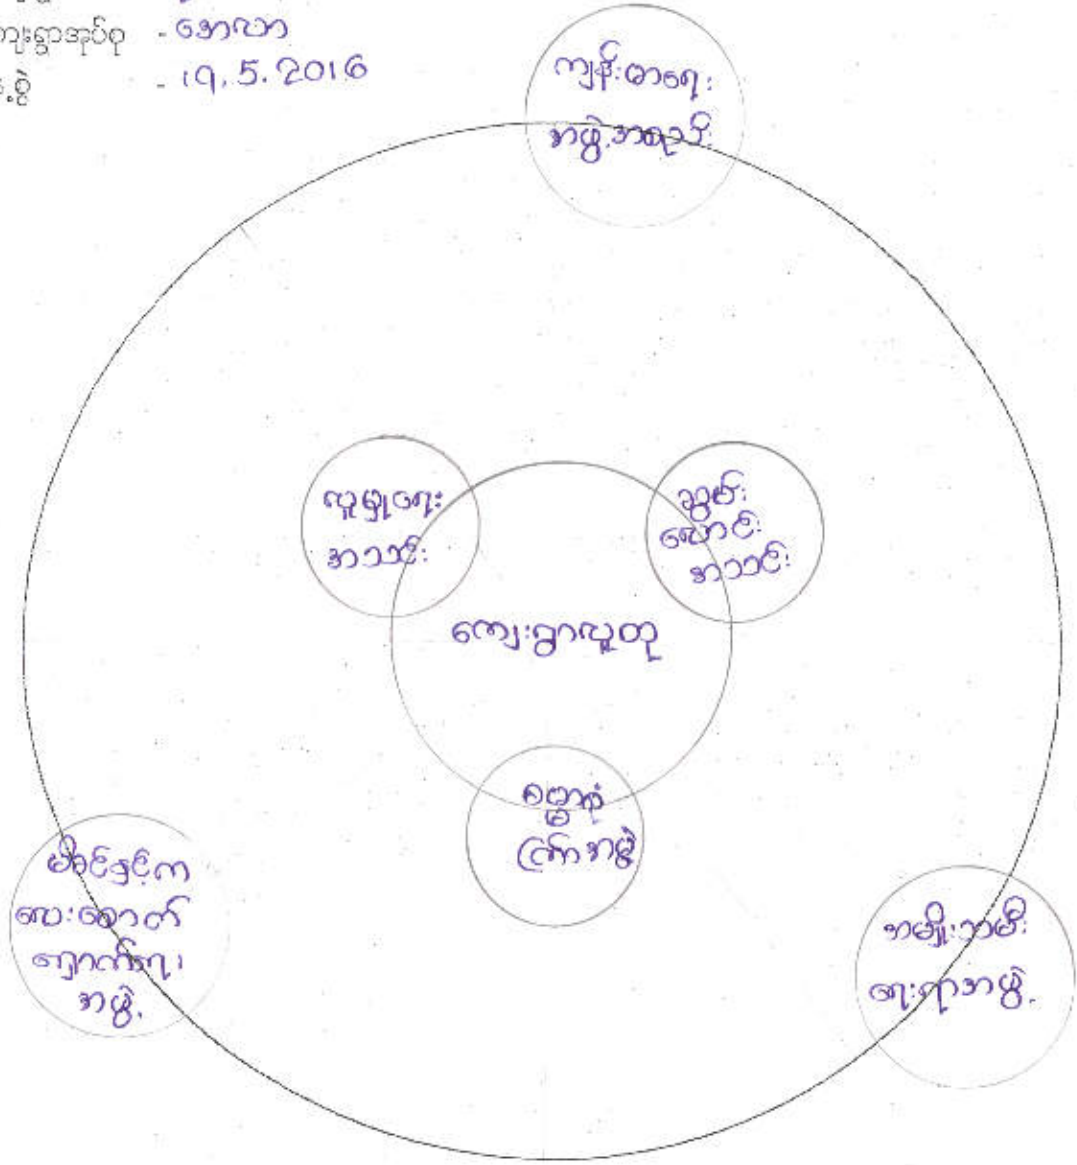 ကျေးရွာအုပ်စု - အေလာ
- 19.5.2016
ကျန်းမာရေး
အဖွဲ့အစည်း
လူမှုရေး
အသင်း
ဆွမ်း
လောင်း
အသင်း
ကျေးရွာလူထု
အဖွဲ့
မိခင်နှင့်က
လေးစောင့်
ရှောက်ရေး
အဖွဲ့
အမျိုးသမီး
ရေးရာအဖွဲ့